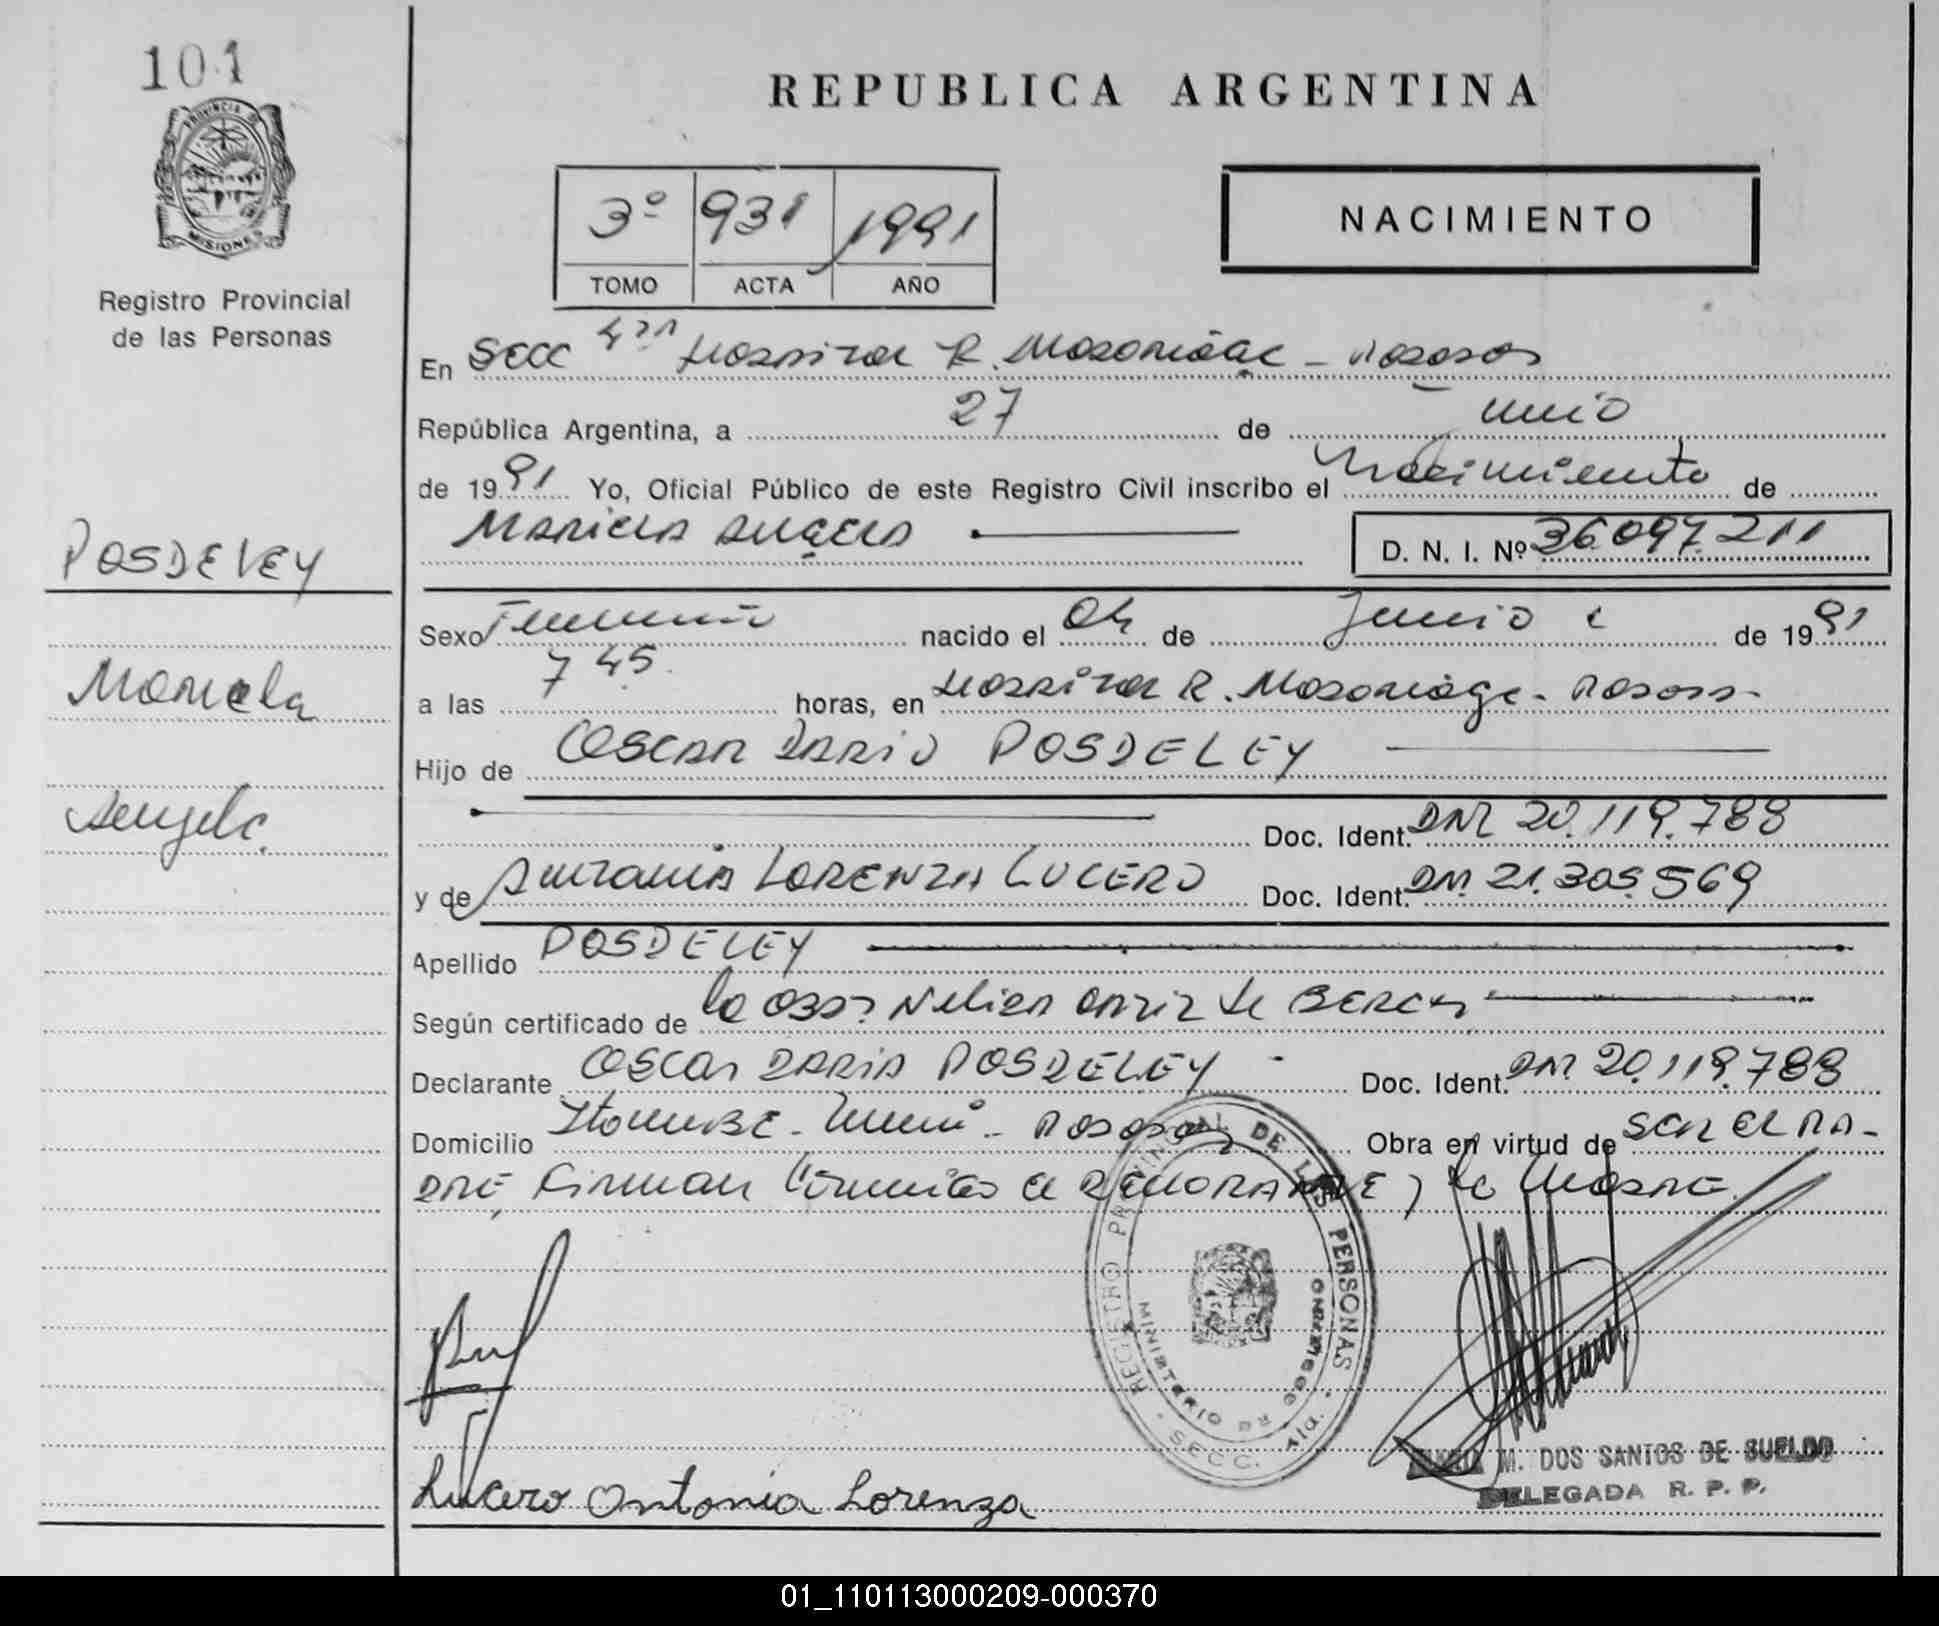 101
PROVINCIA DE
MISIONES
Registro Provincial
de las Personas
REPUBLICA ARGENTINA
3º 931 1991
TOMO ACTA AÑO
NACIMIENTO
En Secc 4ta Hospital R. Madariaga - Posadas
República Argentina, a 27 de Junio
de 1991 Yo, Oficial Público de este Registro Civil inscribo el Nacimiento de
MARIELA ANGELA
D. N. I. Nº 36.097.211
POSDELEY
Mariela
Angela.
Sexo Femenino nacido el 04 de Junio de 1991
a las 7 45 horas, en Hospital R. Madariaga - Posadas-
Hijo de OSCAR DARIO POSDELEY
Doc. Ident. DNI 20.119.788
y de ANTONIA LORENZA LUCERO Doc. Ident. DNI. 21.305.569
Apellido POSDELEY
Según certificado de la Obst. Nelida de
Declarante OSCAR DARIO POSDELEY - Doc. Ident. DNI. 20.119.788
Domicilio - Posadas Obra en virtud de SER EL PA-
DRE, Firman el DECLARANTE y la Madre.
REGISTRO PROVINCIAL DE LAS PERSONAS
MINISTERIO DE GOBIERNO
SECC. 4ta.
Lucero Antonia Lorenza
M. DOS SANTOS DE SUELDO
DELEGADA R. P. P.
01_110113000209-000370